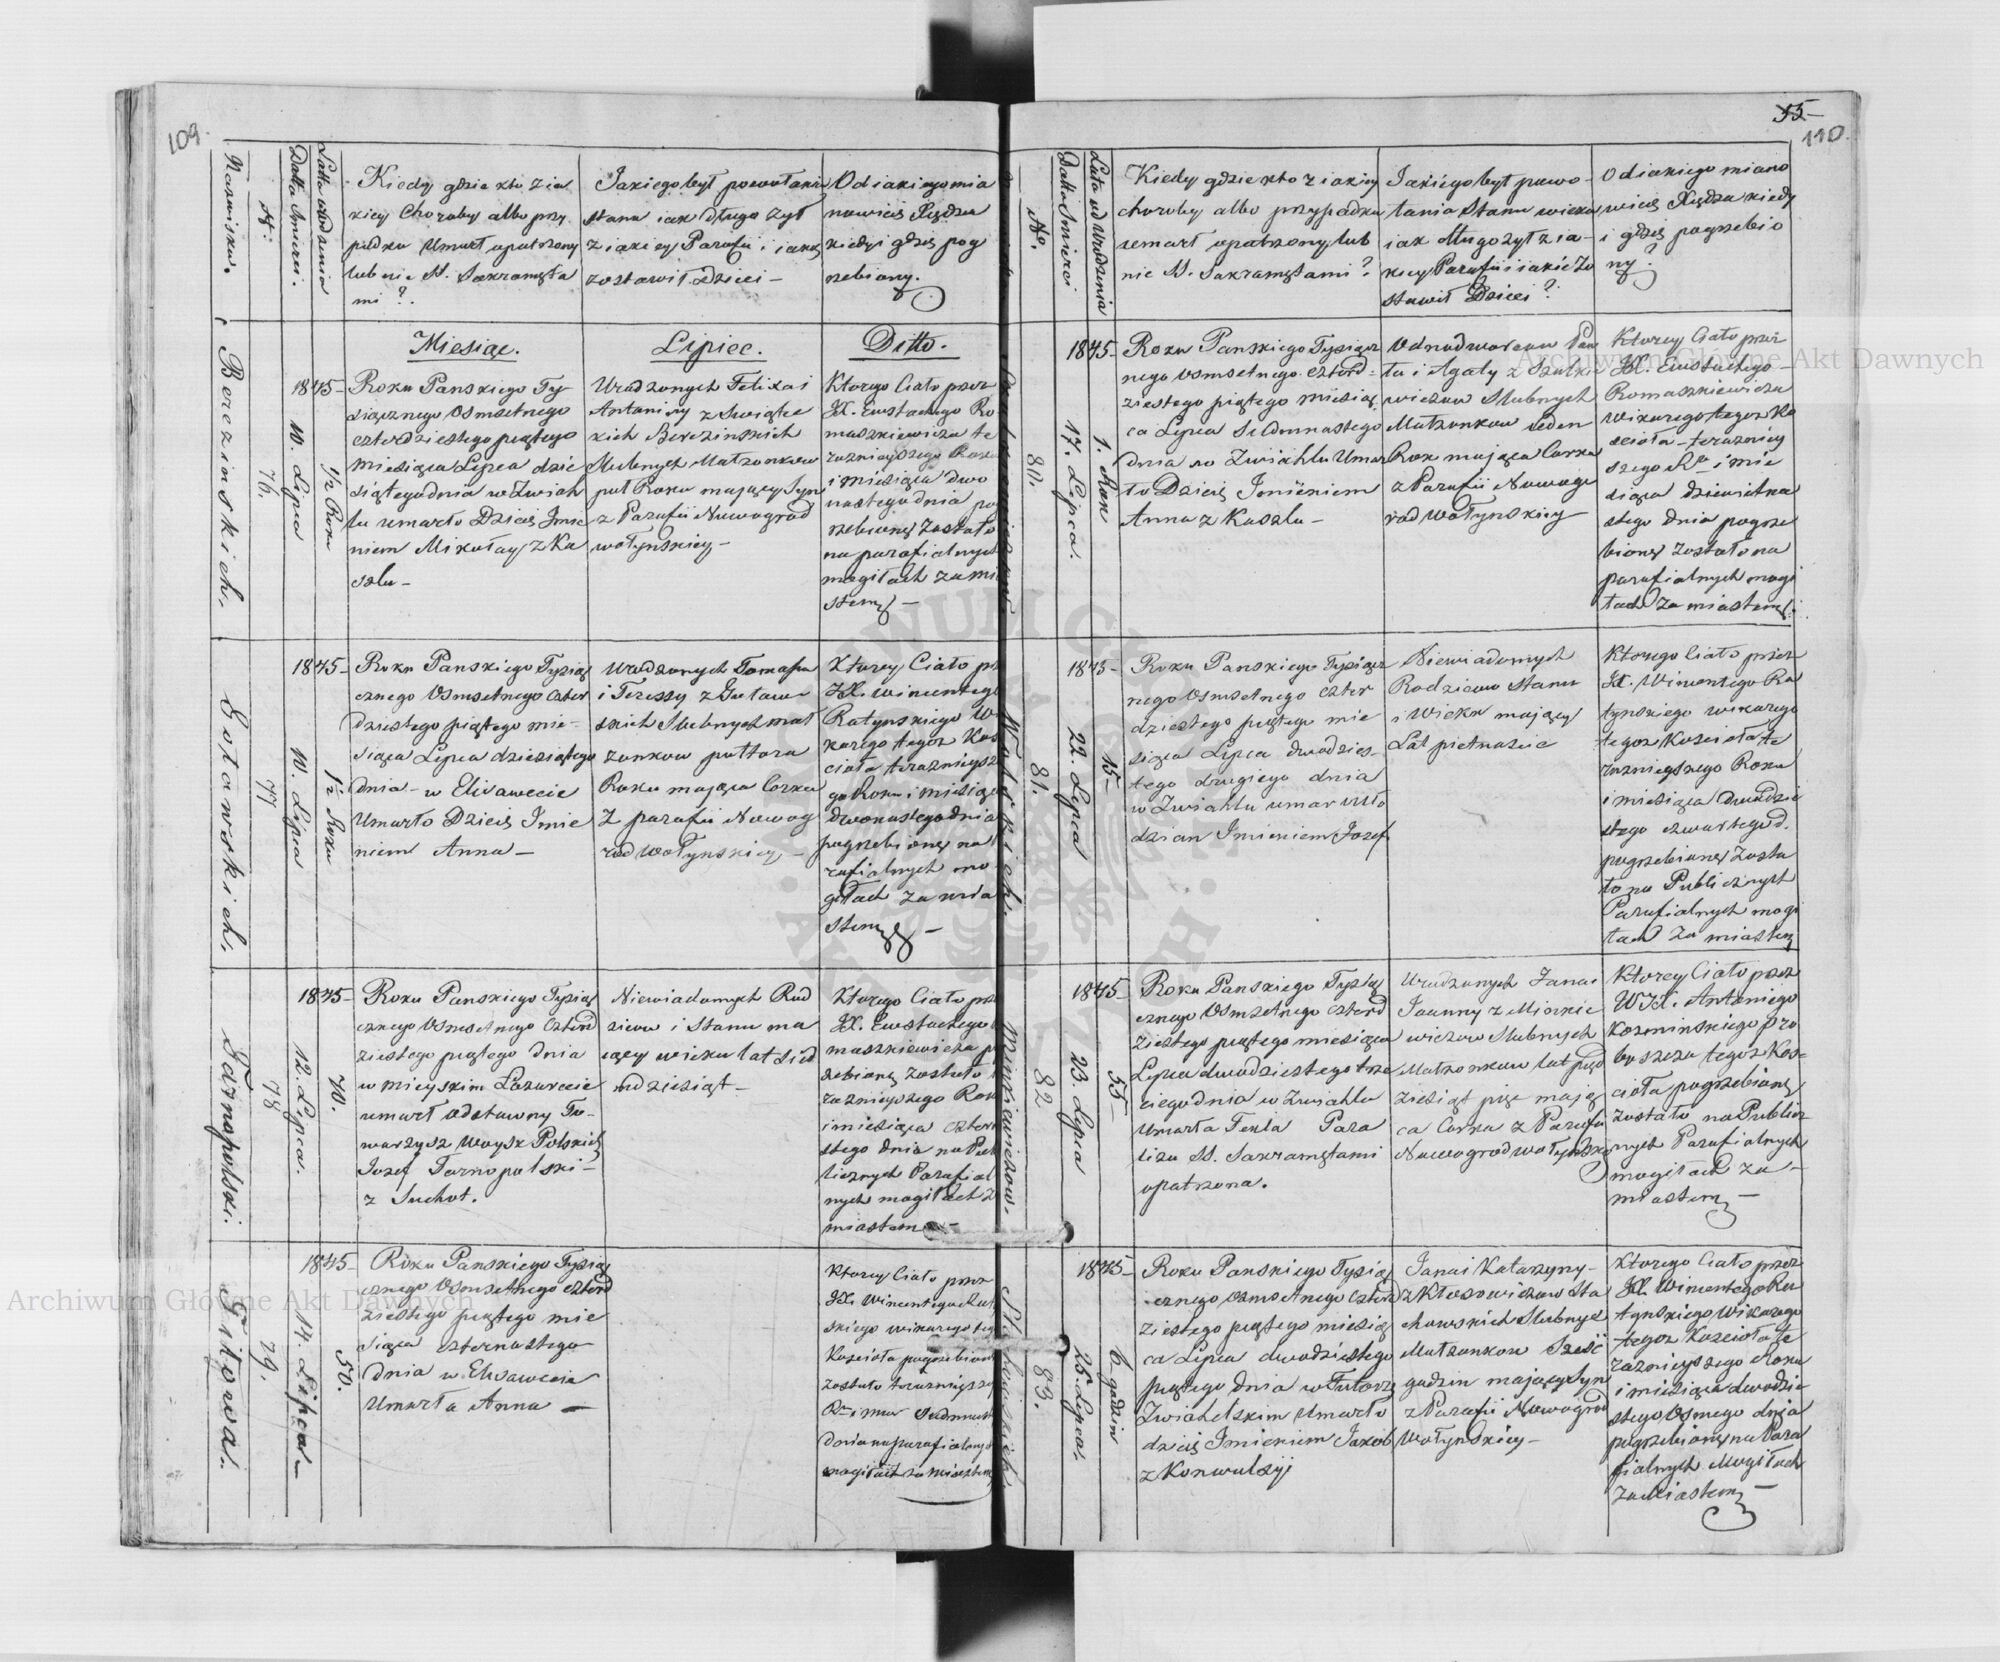 109.
Nazwiska.
N:
Datta Smierci.
Latta urodzenia
Kiedy gdzie kto z ia
kiey Choroby albo przy
padku Umarł opatrzony
lub nie SS. Sakramęta
mi?.
Jakiego był powołania
stanu iak długo żył
z iakiey Parafii i iakie
zostawił Dzieci –
Od iakiego mia
nowicie Xiędza
kiedy i gdzie pog
rzebiony.
Miesiąc.
Lipiec.
Ditto.
Berezinskich,
76.
1845–
10. Lipca
1/2 Roku
Roku Panskiego Ty-
siącznego Osmsetnego
czterdziestego piątego
miesiąca Lipca dzie
siątego dnia w Zwiah
lu umarło Dziecię Imie
niem Mikołay z Ka
szlu –
Urodzonych Felixa i
Antoniny z Swiątec
kich Berezinskich
Slubnych Matzonkow
puł Roku maiący Syn
z Parafii Nowograd
wołynskiey –
Ktorego Ciało przez
JX. Eustachego Ro
maszkiewicza te
raznieyszego Roku
i miesiąca dwu
nastego dnia po
grzebionę zostało
na parafialnych
mogiłach za mia
stem –
Gotawskich,
77
1845–
10. Lipca
1 1/2 Roku
Roku Panskiego Tysiąc
cznego Osmsetnego czter
dziestego piątego mie-
siąca Lipca dziesiątego
dnia w Elisawecie
Umarło Dziecię Imie
niem Anna –
Urodzonych Tomasza
i Teressy z
skich Slubnych mat
zonkow pułtora
Roku maiąca Corka
z parafii Nowog
rod wołynskiey –
Ktorey Ciało prz
JX. Wincentego
Ratynskiego Wi
karego tegoz Kos
cioła teraznieysz
go Roku i miesiąca
dwonastego dnia
pogrzebionę na
rafialnych mo
giłach za mia
stem –
Tarnapolski.
78
1845–
12. Lipca.
70.
Roku Panskiego Tysiąc
cznego Osmsetnego czterd
ziestego piątego dnia
w mieyskim Lazarecie
umarł odstawny To-
warzysz Woysk Polskich
Jozef Tarnopolski –
z Suchot.
Niewiadomych Rod
zicow i Stanu ma
iący wieku lat sied
mdziesiąt –
Ktorego Ciało prz
JX. Eustachego
maszkiewicza po
zebionę zostało
raznieyszego Roku
i miesiąca cztern
stego dnia na Pub
licznych Parafial
nych mogiłach z
miastem –
Titowa.
79.
1845–
14. Lipca –
50.
Roku Panskiego Tysiąc
cznego Osmsetnego czterd
ziestego piątego mie
siąca czternastego
dnia w Elisawecie
Umarła Anna –
Ktorey Ciało przez
JX. Wincentego Rat
skiego wikarego teg
Kościoła pogrzebion
zostało teraznieysze
Dnia na parafialnych
mogiłach za miastem
55–
110.
N.
Datta Smierci
Lata od Urodzenia
Kiedy gdzie kto z iakiey
choroby albo przypadku
umarł opatrzony lub
nie SS. Sakramętami?
Jakiego był powo-
łania Stanu wieku
iak długo żył z ia-
kiey Parafii i iakie zo
stawił Dzieci?
Od iakiego miano
wicie Xiędza kiedy
i gdzie pogrzebio
ny?
80.
1845–
17. Lipca.
1. Rok
Roku Panskiego Tysiącz
nego Osmsetnego czterd-
ziestego piątego miesią
ca Lipca Siedmnastego
dnia w Zwiahlu Umar
ło Dziecię Imieniem
Anna z Kaszlu –
Odnodworcow Pan
ta i Agaty z Szulki
wiczow Slubnych
Matzonkow ieden
Rok maiąca Corka
z Parafii Nowogr
rod wołynskiey –
Ktorey Ciało przez
JX. Eustachego –
Romaszkiewicza
wikarego tegoz Ko
scioła – terazniey
szego Rku i mie
siąca dziewiętna
stego dnia pogrze
bionę zostało na
parafialnych mogi
łach za miastem.
Wołskich.
81.
1845–
22. Lipca
15–
Roku Panskiego Tysiącz
nego Osmsetnego czter
dziestego piątego mie
siąca Lipca dwudzies-
tego drugiego dnia
w Zwiahlu umar Wło
dzian Imieniem Jozef
Niewiadomych
Rodzicow Stanu
i Wieku maiący
Lat piętnaście
Ktorego Ciało przez
JX. Wincentego Ra
tynskiego wikarego
tegoz Koscioła te
raznieyszego Roku
i miesiąca Dwudzie
stego czwartego d.
pogrzebionę zosta
ło na Publicznych
Parafialnych mogi
łach za miastem
82
1845–
23. Lipca
55–
Roku Panskiego Tysią
cznego Osmsetnego czterd
ziestego piątego miesiąca
Lipca dwudziestego trze
ciego dnia w Zwiahlu
Umarła Tekla Para
liżu SS. Sakramętami
opatrzona.
Urodzonych Jana i
Joanny z Mioskie
wiczow Slubnych
Matzonkow lat pięd
ziesiąt pięc maią
ca Corka z Parafii
Nowogrodwołynskiey
Ktorey Ciało przez
WJX. Antoniego
Kosminskiego pro
boszcza tegoz Kos-
cioła pogrzebionę
zostało na Publicz
nych Parafialnych
mogiłach za –
miastem –
83.
1845–
25. Lipca.
6 godzin
Roku Panskiego Tysiąc
cznego Osmsetnego czterd
ziestego piątego miesią
ca Lipca dwudziestego
piątego dnia w Futorze
Zwiahelskim Umarło
dziecię Imieniem Jakob
z Konwulsyi
Jana i Katarzyny –
z Kłosowiczow Sta
chowskich Slubnych
Matzonkow Sześć
godzin maiący Syn
z Parafii Nowogrod
Wołynskiey –
Ktorego Ciało przez
JX. Wincentego Ra
tynskiego Wikarego
tegoz Koscioła te
raznieyszego Roku
i miesiąca dwudzie
stego Osmego dnia
pogrzebionę na Para
fialnych Mogiłach
za Miastem –
Archiwum Główne Akt Dawnych
Archiwum Główne Akt Dawnych